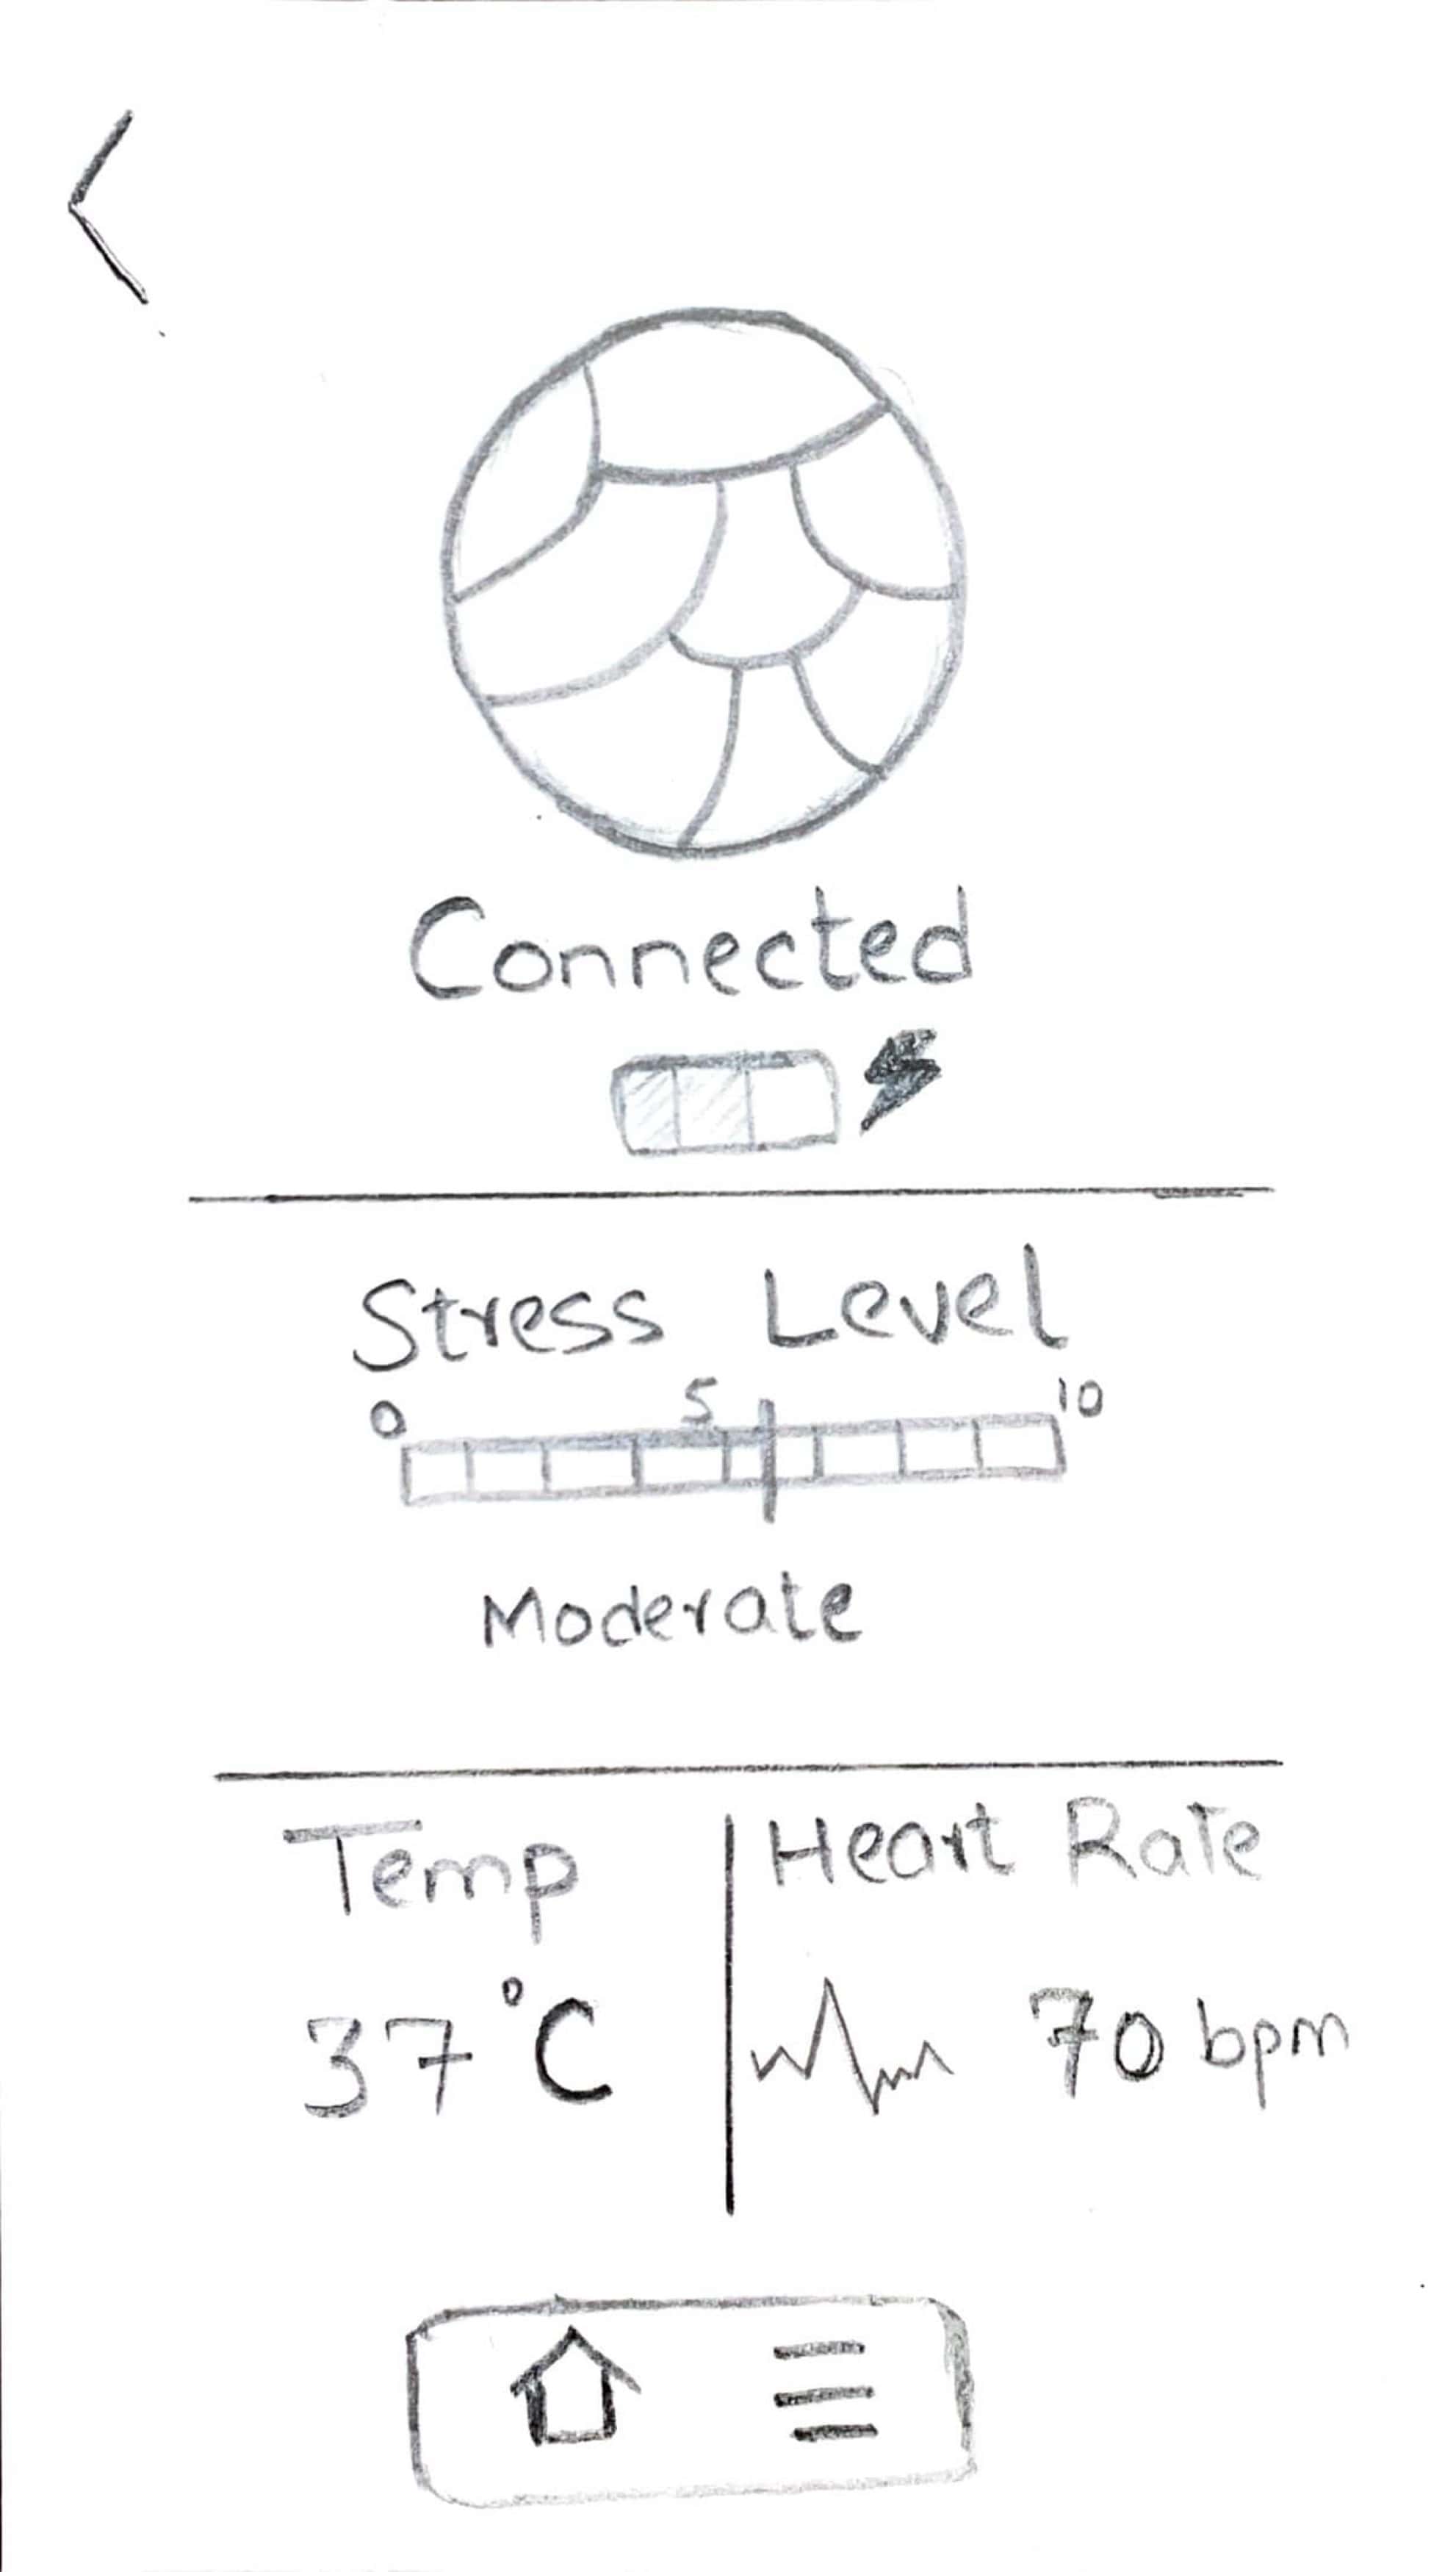 Connected
Stress Level
0 5 10
Moderate
Temp
37°C
Heart Rate
70 bpm